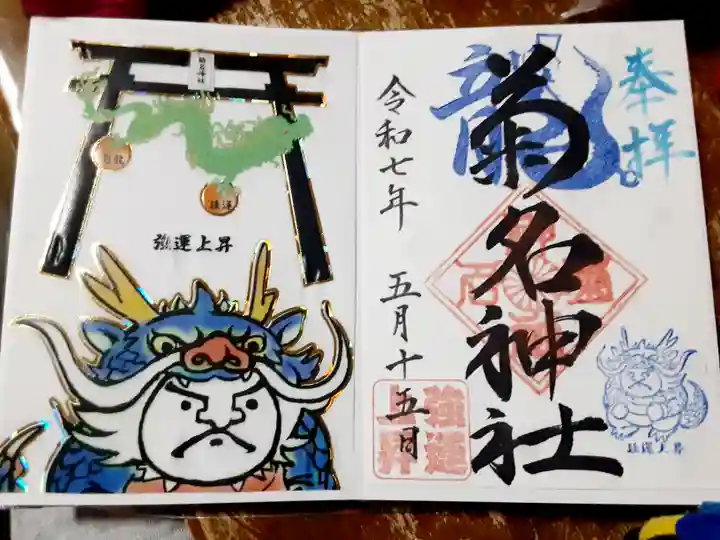 強運上昇
奉拝
龍
菊名神社
令和七年 五月十五日
強運
上昇
強運上昇